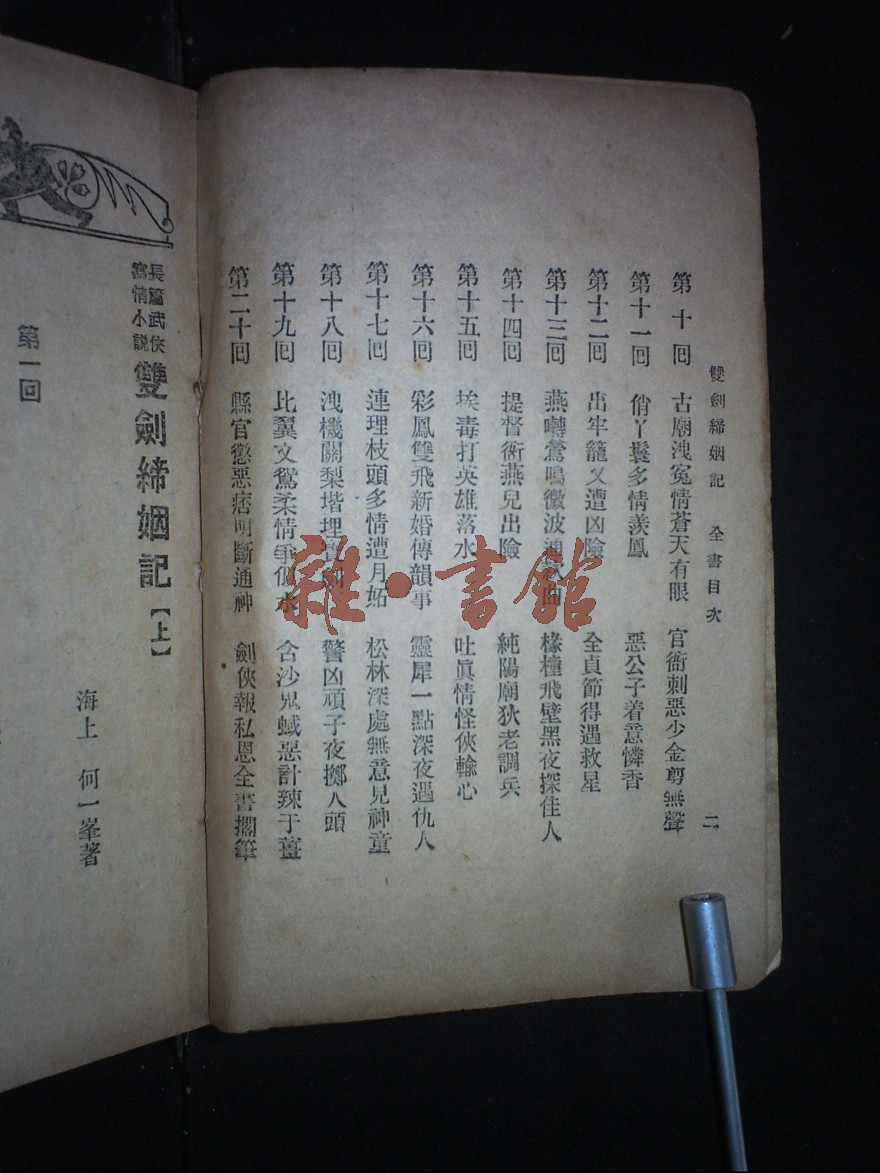 雙劍締姻記 全書目次 二
第十回 古廟洩冤情蒼天有眼 官衙刺惡少金剪無聲
第十一回 俏丫鬟多情羨鳳 惡公子着意憐香
第十二回 出牢籠又遭凶險 全貞節得遇救星
第十三回 燕囀鶯鳴微波通 椽檀飛壁黑夜探佳人
第十四回 提督衙燕兒出險 純陽廟狄老調兵
第十五回 埃毒打英雄落水 吐眞情怪俠輸心
第十六回 彩鳳雙飛新婚傳韻事 靈犀一點深夜遇仇人
第十七回 連理枝頭多情遭月妬 松林深處無意見神童
第十八回 洩機關梨堦埋 警凶頑子夜擲人頭
第十九回 比翼文鴛柔情 水 含沙鬼蜮惡計辣于薑
第二十回 縣官懲惡痞明斷通神 劍俠報私恩全書擱筆
雜·書館
長篇武俠
寫情小說
雙劍締姻記【上】
海上 何一峯著
第一回